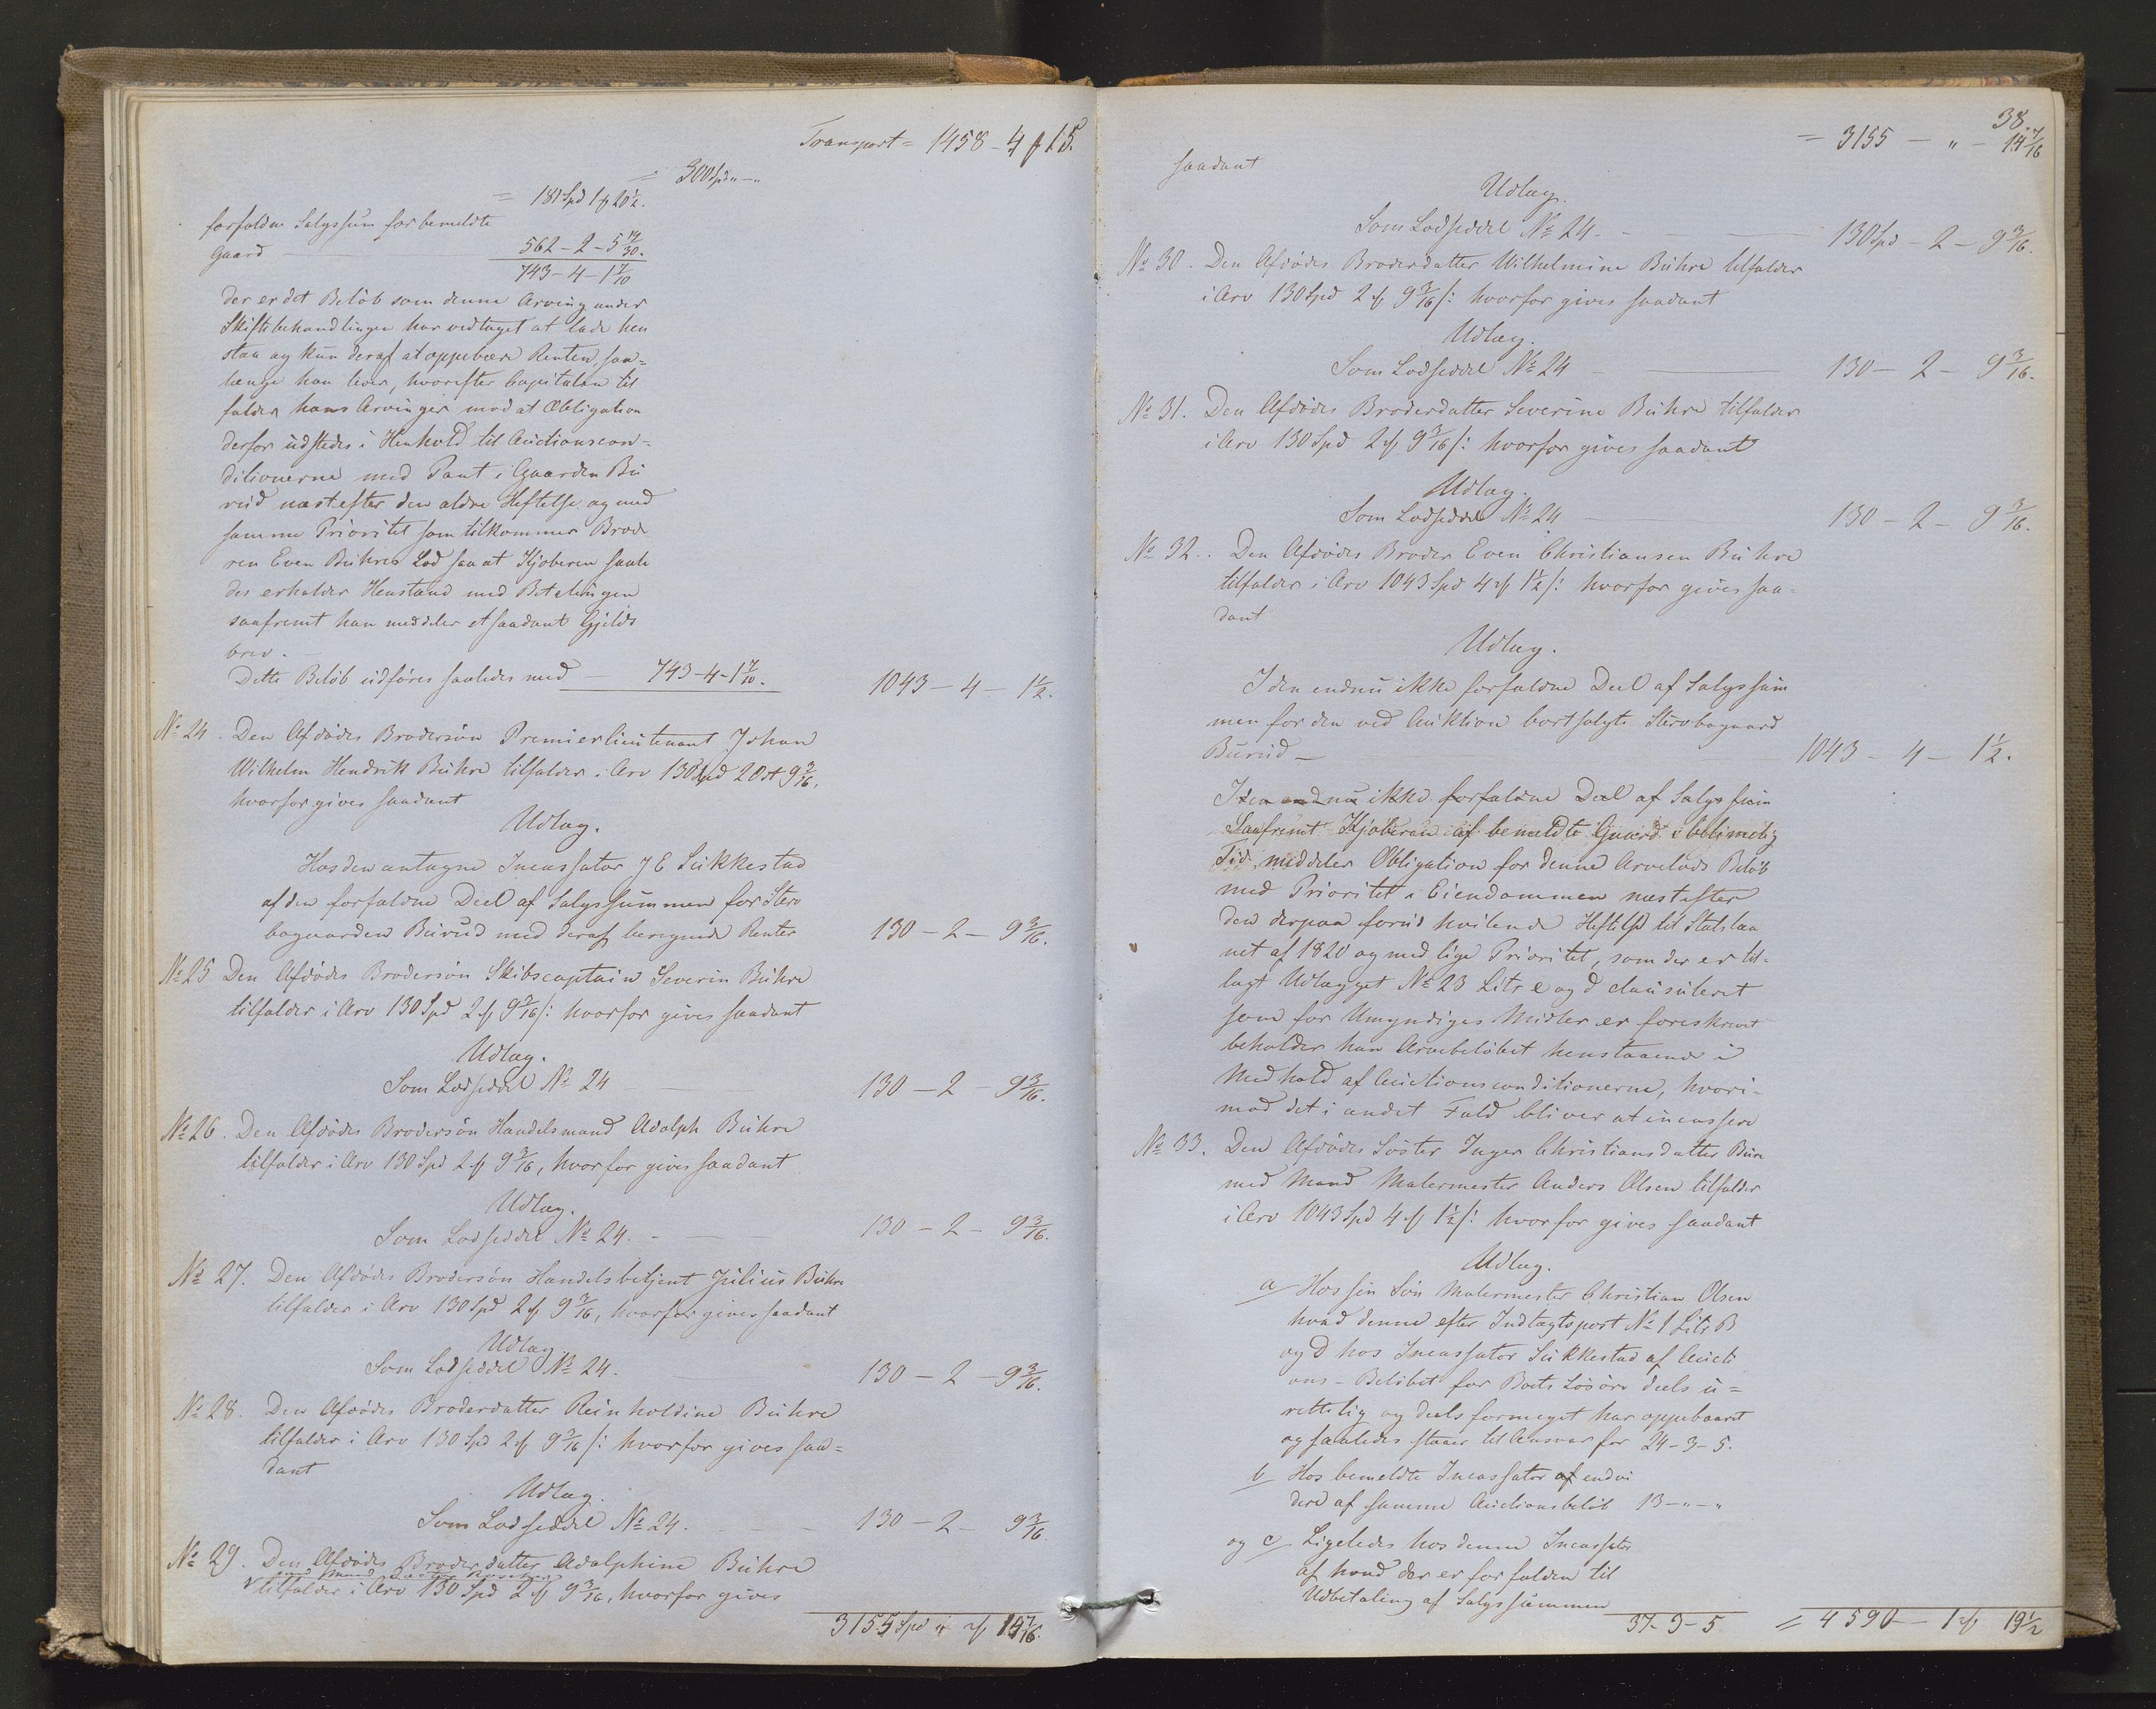 Transport = 1458 - 4 ƒ 15.
= 300 Spd " - "
= 181 Spd 1 ƒ 20 1/2.
forfaldne Salgssum for bemeldte
Gaard 562 - 2 - 5 19/30.
743 - 4 - 1 7/10
der er det Beløb som denne Arving under
Skiftebehandlingen har vedtaget at lade hen
staa og kun deraf at oppebære Renten, saa=
længe han lever, hvorefter Capitalen til
falder hans Arvinger mod at Obligation
derfor udstedes i Henhold til Auctionscon=
ditionerne med Pant i Gaarden Bu
rud næstefter den ældre Heftelse og med
samme Prioritet som tilkommer Brode
ren Even Buhres Lod saa at Kjøberen saale
des erholder Henstand med Betalingen
saafremt han meddeler et saadant Gjelds
brev.
Dette Beløb udføres saaledes med - 743 - 4 - 1 7/10. 1043 - 4 - 1 1/2.
No 24. Den Afdødes Brodersøn Premierlieutenant Johan
Wilhelm Hendrik Buhre tilfalder i Arv 130 Spd 2 Ort 9 3/16,
hvorfor gives saadant
Udlæg.
Hos den antagne Incassator J E Sukkestad
af den forfaldne Deel af Salgssummen for Stervbogaarden
Burud med deraf beregnede Renter 130 - 2 - 9 3/16.
No 25 Den Afdødes Brodersøn Skibscaptain Severin Buhre
tilfalder i Arv 130 Spd 2 ƒ 9 3/16 /: hvorfor gives saadant
Udlæg.
Som Lodseddel No 24 130 - 2 - 9 3/16.
No 26. Den Afdødes Brodersøn Handelsmand Adolph Buhre
tilfalder i Arv 130 Spd 2 ƒ 9 3/16, hvorfor gives saadant
Udlæg.
Som Lodseddel No 24. - 130 - 2 - 9 3/16.
No 27. Den Afdødes Brodersøn Handelsbetjent Julius Buhre
tilfalder i Arv 130 Spd 2 ƒ 9 3/16, hvorfor gives saadant
Udlæg
Som Lodseddel No 24. 130 - 2 - 9 3/16.
No 28. Den Afdødes Broderdatter Reinholdine Buhre
tilfalder i Arv 130 Spd 2 ƒ 9 3/16 /: hvorfor gives saa=
dant
Udlæg.
Som Lodseddel No 24. 130 - 2 - 9 3/16.
No 29. Den Afdødes Broderdatter Adolphine Buhre
med Mand
tilfalder i Arv 130 Spd 2 ƒ 9 3/16, hvorfor gives
3155 Spd " ƒ 14 7/16.
38.
= 3155 - " - 14 7/16
saadant
Udlæg.
Som Lodseddel No 24. - 130 Spd - 2 - 9 3/16.
No 30. Den Afdødes Broderdatter Wilhelmine Buhre tilfalder
i Arv 130 Spd 2 ƒ 9 3/16 /: hvorfor gives saadant
Udlæg.
Som Lodseddel No 24 - 130 - 2 - 9 3/16.
No 31. Den Afdødes Broderdatter Severine Buhre tilfalder
i Arv 130 Spd 2 ƒ 9 3/16 /: hvorfor gives saadant
Udlæg.
Som Lodseddel No 24 130 - 2 - 9 3/16.
No 32. Den Afdødes Broder Even Christiansen Buhre
tilfalder i Arv 1043 Spd 4 ƒ 1 1/2 /: hvorfor gives saa=
dant
Udlæg.
I den endnu ikke forfaldne Deel af Salgssum
men for den ved Auktion bortsolgte Stervbogaard
Burud - 1043 - 4 - 1 1/2.
I den endnu ikke forfaldne Deel af Salgssum
Saafremt Kjøberen af bemeldte Gaard i betimelig
Tid meddeler Obligation for denne Arvelods Beløb
med Prioritet i Eiendommen næstefter
den derpaa forud hvilende Heftelse til Statslaa
net af 1820 og med lige Prioritet, som der er til=
lagt Udlægget No 23 Litr c og d clausuleret
som for Umyndiges Midler er foreskrevet
beholder han Arvebeløbet henstaaende i
Medhold af Auctionsconditionerne, hvori-
mod det i andet Fald bliver at incassere
No 33. Den Afdødes Søster Inger Christiansdatter Bure
med Mand Malermester Anders Olsen tilfalder
i Arv 1043 Spd 4 ƒ 1 1/2 /: hvorfor gives saadant
Udlæg.
a/ Hos sin Søn Malermester Christian Olsen
hvad denne efter Indtægtspost No 1 Litr B
og D hos Incassator Sukkestad af Aucti
ons-Beløbet for Boets Løsøre deels u=
rettelig og deels formeget har oppebaaret
og saaledes staaer til Ansvar for 24 - 3 - 5.
b/ Hos bemeldte Incassator af endvi
dere af samme Auctionsbeløb 13 - " - "
og c/ Ligeledes hos denne Incassator
af hvad der er forfalden til
Udbetaling af Salgssummen
37 - 3 - 5 = 4590 - 1 ƒ 19 1/2